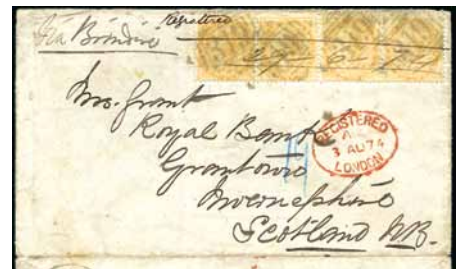 Via Brindisi
Registered
27-6-74
Mrs. Grant
Royal Bank
Grantown
Invernesshire
Scotland NB.
REGISTERED
3 AU 74
LONDON